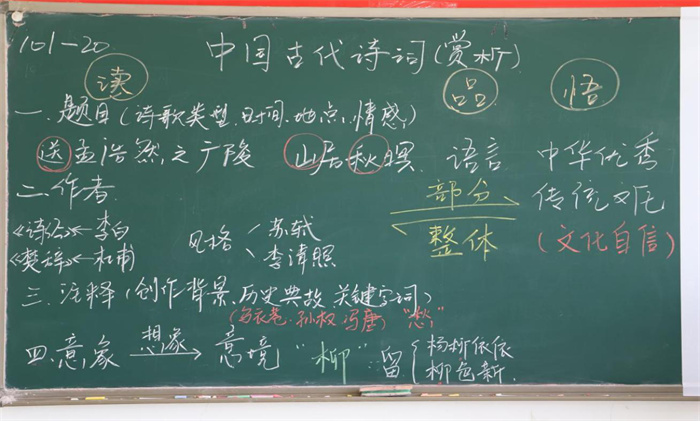 101-20
中国古代诗词(赏析)
读 品 悟
一.题目(诗歌类型.时间.地点.情感)
送孟浩然之广陵 山居秋暝 语言 中华优秀
二.作者 部分 传统文化
《诗经》←李白 风格 苏轼 整体 (文化自信)
《楚辞》←杜甫 李清照
三.注释(创作背景.历史典故.关键字词)
(乌衣巷.孙权.冯唐) "愁"
四.意象 想象 意境 "柳" 留 杨柳依依
柳色新.